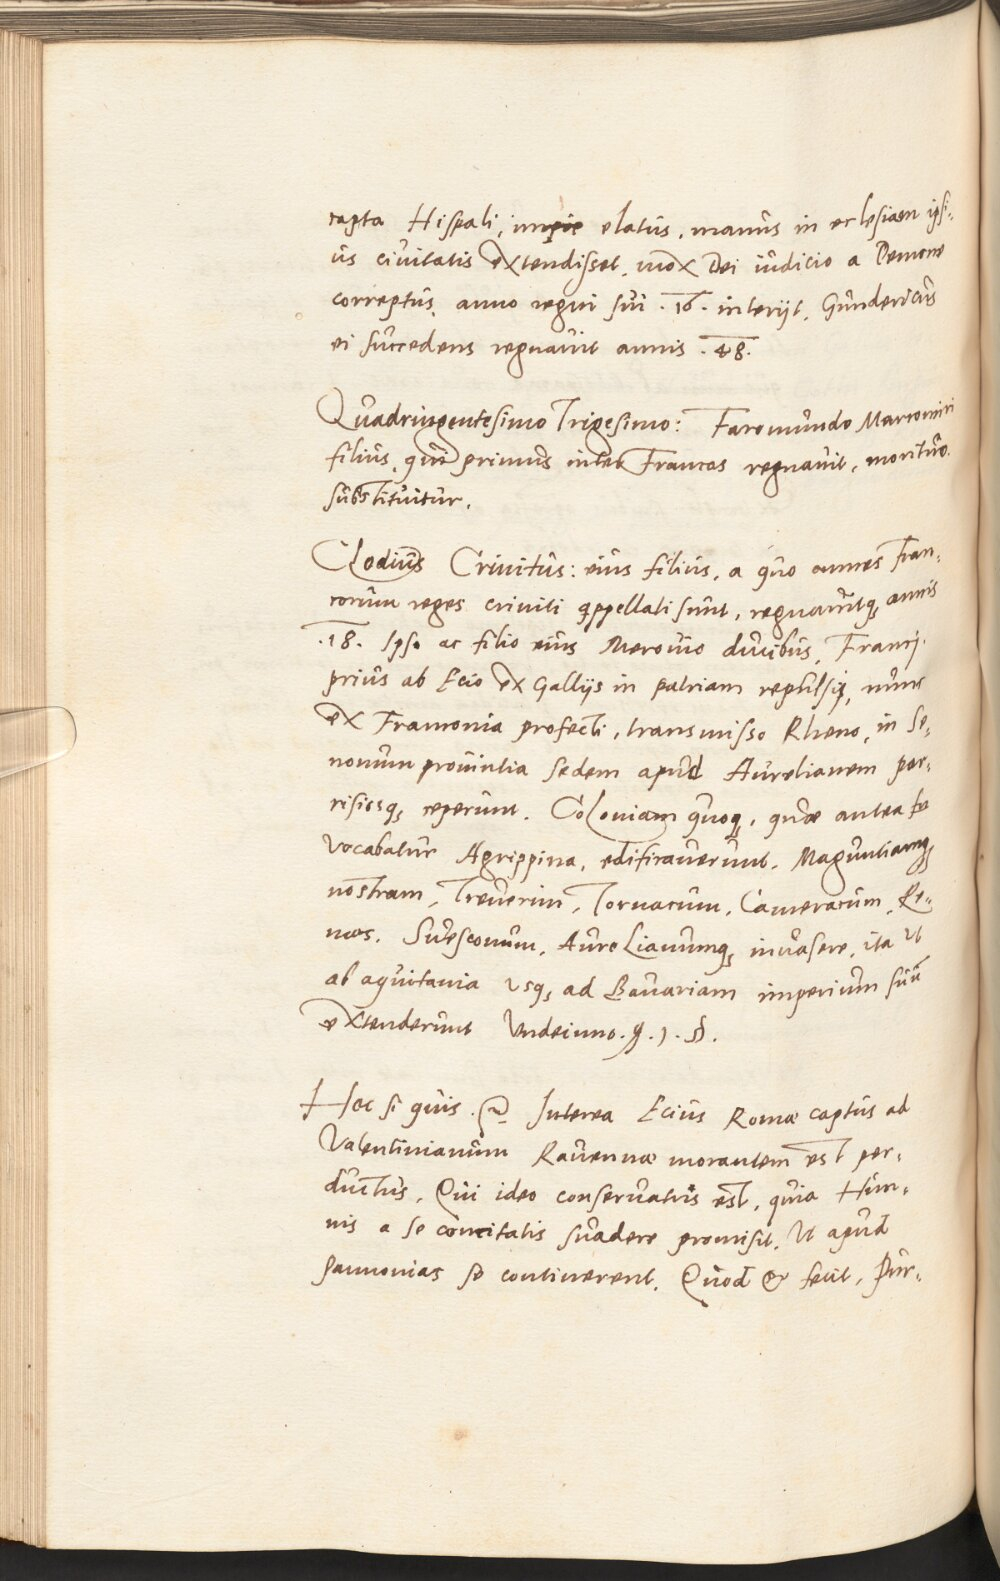 capta Hispali, impie elatus, manus in ecclesiam ipsi-
us ciuitatis extendisset, mox Dei iudicio a Demone
correptus, anno regni sui .16. interijt. Gundericus
ei succedens regnauit annis .48.
Quadringentesimo Trigesimo: Faromundo Marcomiri
filius, qui primus inter Francos regnauit, morituro
substituitur.
Clodius Crinitus: eius filius, a quo omnes Fran-
corum reges criniti appellati sunt, regnauitq, annis
.18. Ipso ac filio eius Merouio ducibus, Francj
prius ab Ecio ex Gallijs in patriam repulsi, nunc
ex Franconia profecti, transmisso Rheno, in Se-
nonum prouintia sedem apud Aurelianem par-
risiosq, ceperunt. Coloniam quoq, quae antea
vocabatur Agrippina, edificauerunt. Maguntiamq,
nostram, Treuerim, Tornacum, Cameracum, Re-
mos. Suesconum, Aurelianumq, inuasere, ita ut
ab aquitania usq, ad Bauariam imperium suū
extenderunt Vndeiuno.
Hoc si quis. Interea Ecius Romae captus ad
Valentinianum Rauennae morantem est per-
ductus. Qui ideo conseruatus est, quia Hun-
nis a se concitatis suadere promisit, Ut apud
Pannonias se continerent. Quod & fecit, Pur-